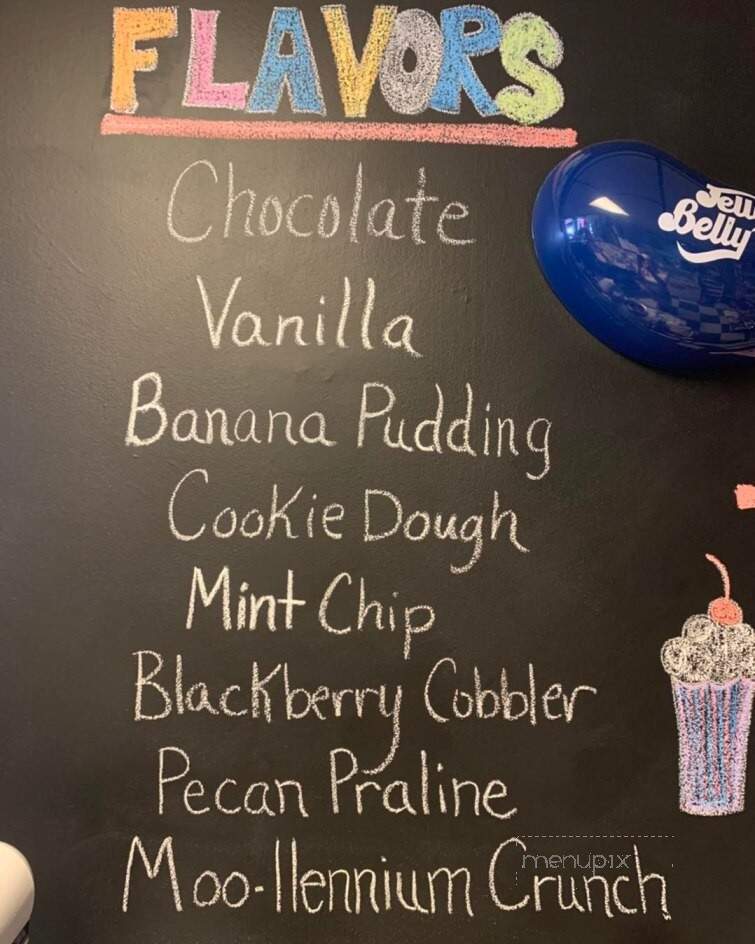 FLAVORS
Chocolate
Jelly
Belly
Vanilla
Banana Pudding
Cookie Dough
Mint Chip
Blackberry Cobbler
Pecan Praline
menupix
Moo-llennium Crunch